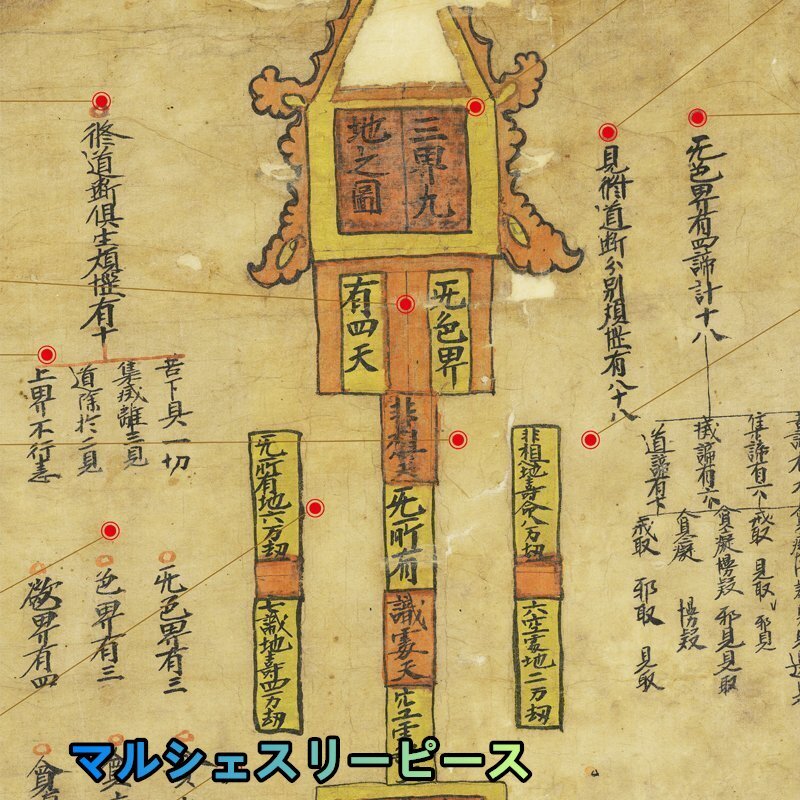 三界九
地之圖
无色界
有四天
无所有
識處天
非想地壽命八万劫
六空處地二万劫
无所有地六万劫
七識地壽四万劫
无色界有四諦計十八
見修道断分別煩惱有八十八
集諦有六
道諦有七
戒取
見取
邪見
貪癡
慢疑
邪見
見取
貪癡
慢疑
戒取
邪取
見取
修道断俱生煩惱有十
苦下具一切
集滅離三見
道除於二見
上界不行恚
无色界有三
色界有三
欲界有四
マルシェスリーピース